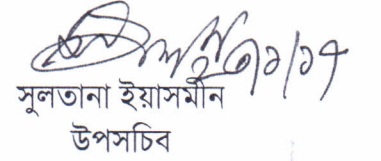 সুলতানা ইয়াসমীন
উপসচিব